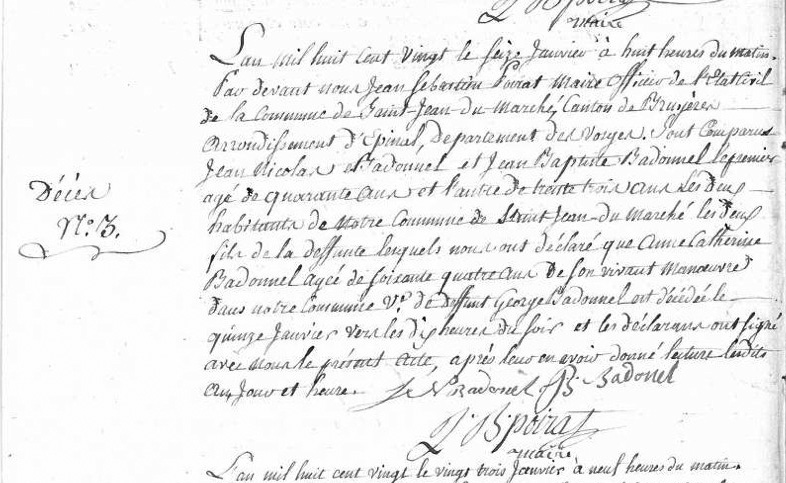 maire
L'an mil huit cent vingt le seize Janvier à huit heures du matin.
Par devant nous Jean Sébastien Poirat Maire Officier de l'Etat Civil
de la Commune de Saint-Jean-du-Marché, Canton de Bruyères
arrondissement d'Epinal, Departement des Vosges. Sont Comparus
Jean Nicolas Badonnel et Jean Baptiste Badonnel le premier
agé de quarante ans et l'autre de trente trois ans les deux
Décès
N.o 3.
habitants de Notre Commune de Saint Jean-du Marché les deux
fils de la deffunte lesquels nous ont déclaré que Anne Catherine
Badonnel agée de soixante quatre ans de son vivant Manœuvre
dans notre Commune V.e de deffunt George Badonnel est décédée le
quinze Janvier vers les dix heures du soir et les déclarans ont signé
avec Nous le présent acte, après leur en avoir donné lecture lesdits
an, Jour et heure. J N Badonel J B. Badonel
J. B. poirat
maire
L'an mil huit cent vingt le vingt trois Janvier à neuf heures du matin.